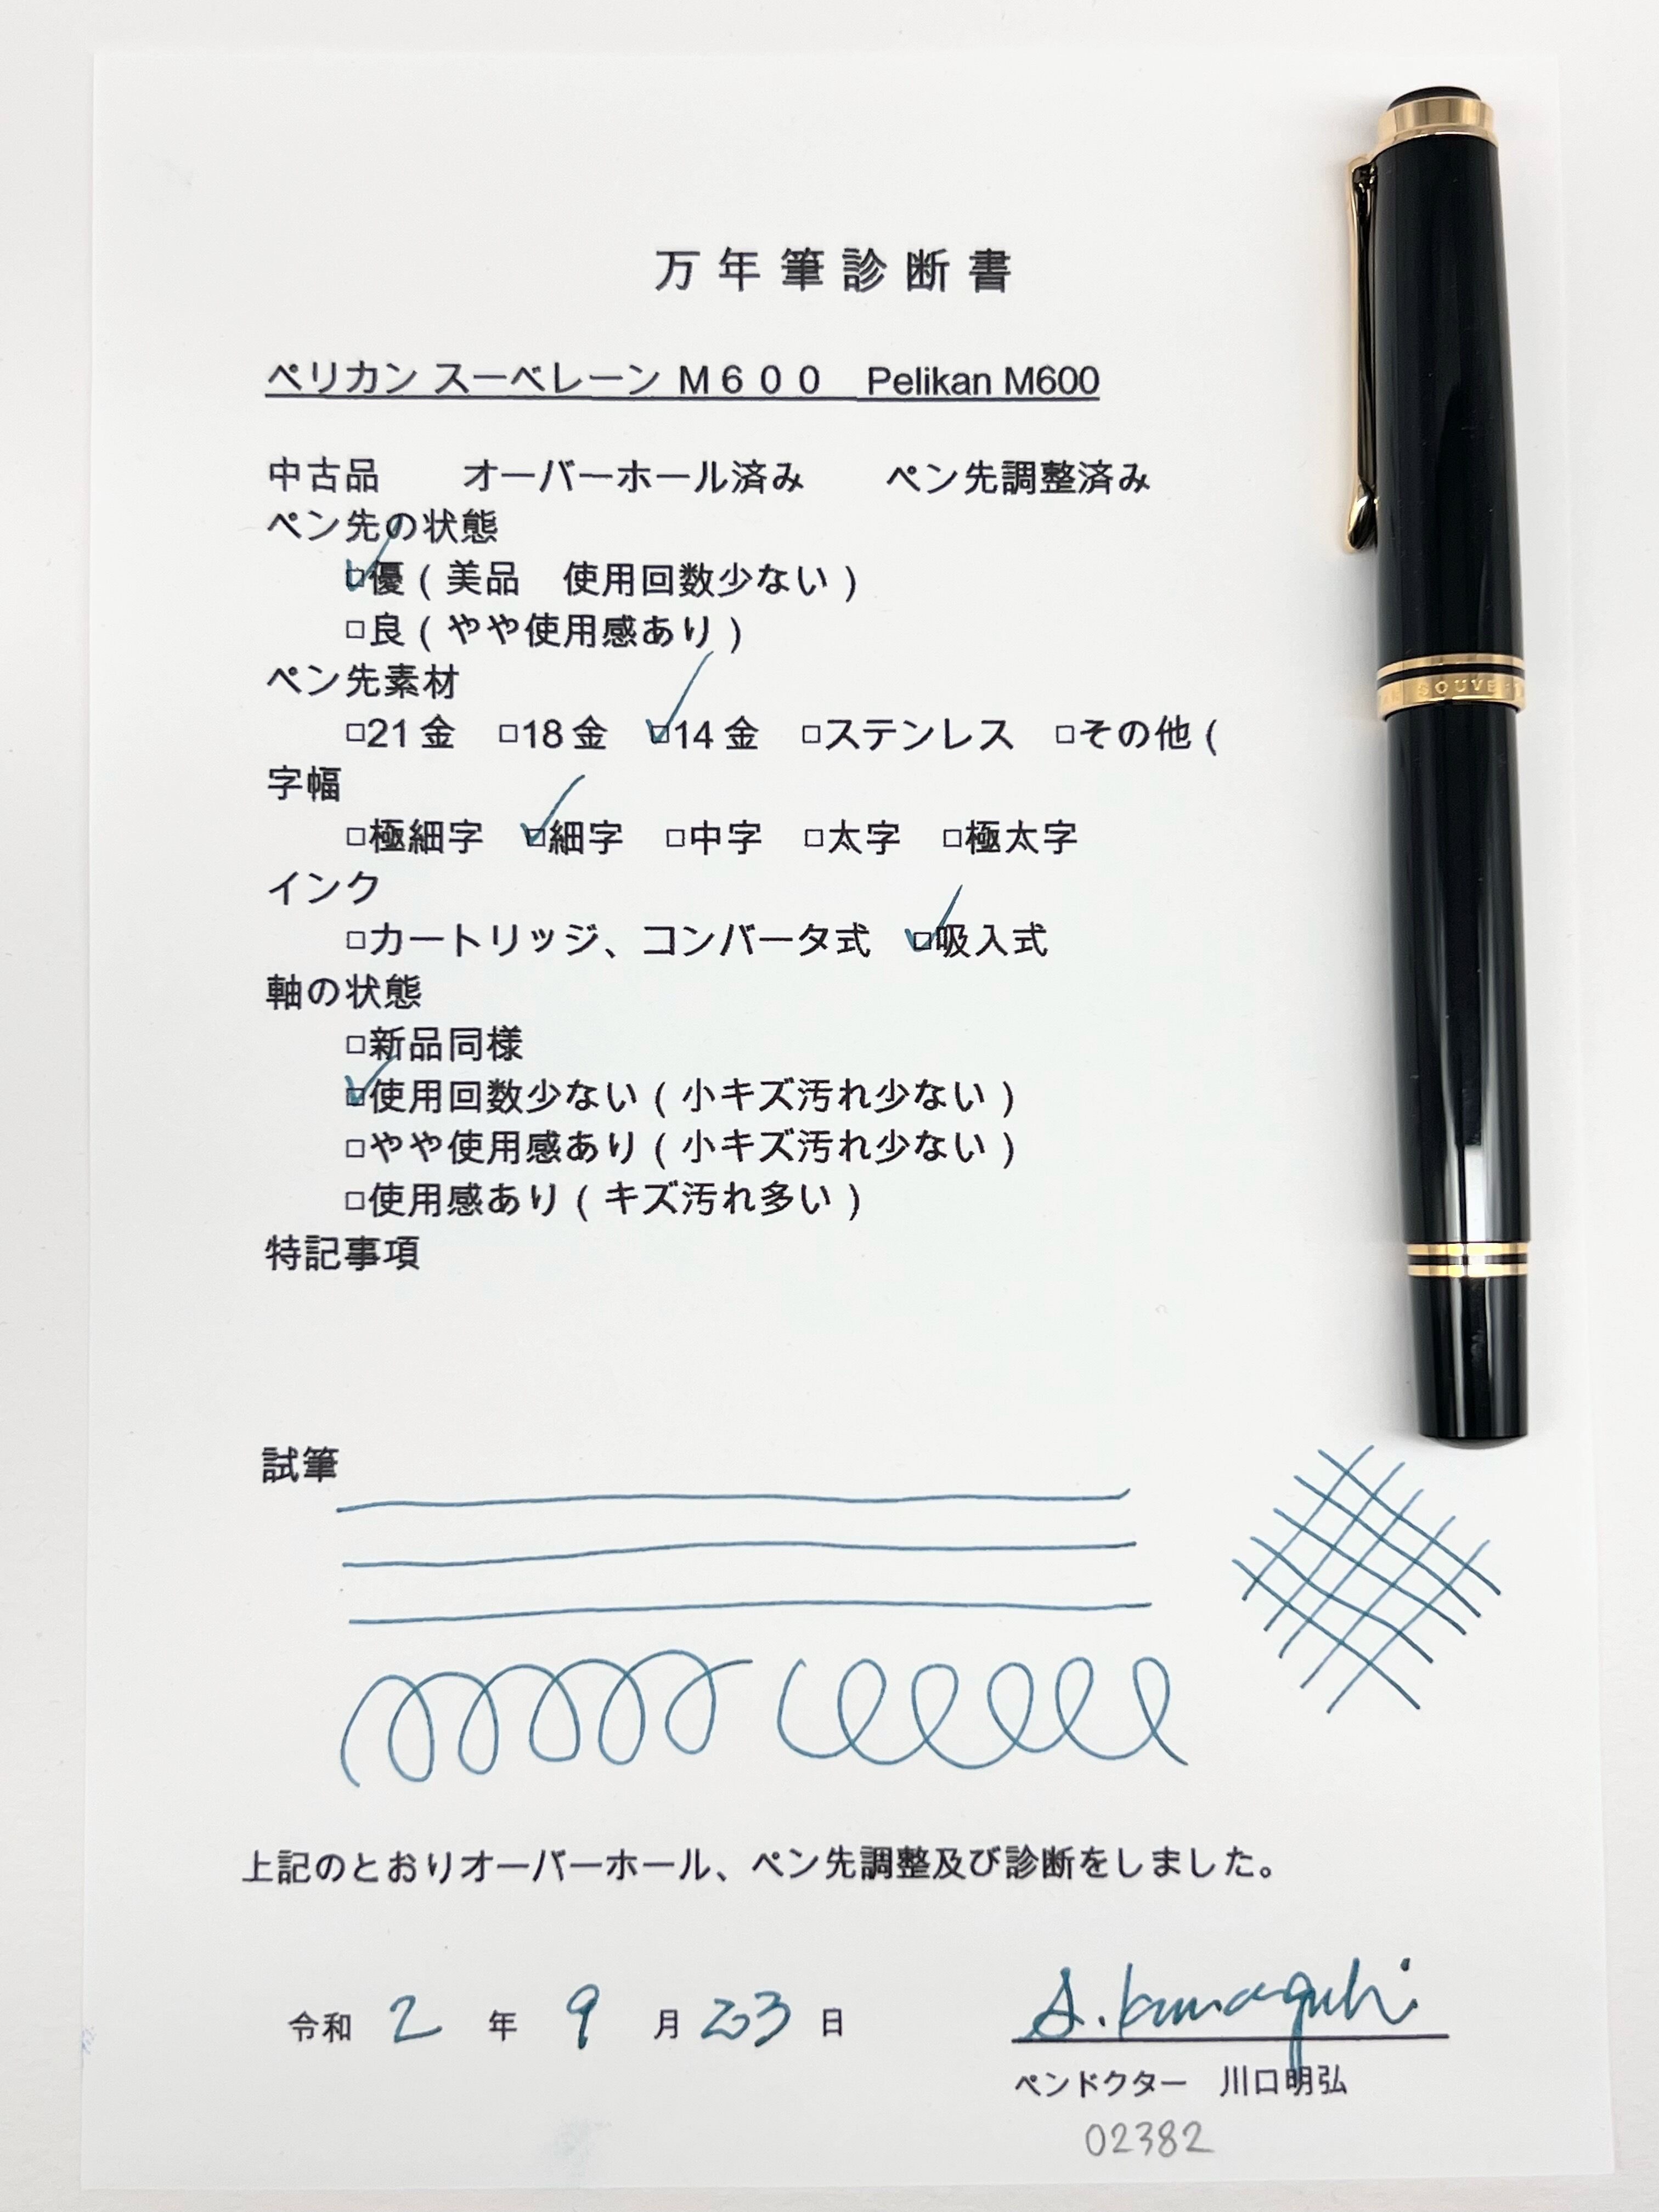 万年筆診断書
ペリカン スーベレーン M600　Pelikan M600
中古品　　オーバーホール済み　　ペン先調整済み
ペン先の状態
☑優（美品　使用回数少ない）
□良（やや使用感あり）
ペン先素材
□21金　□18金　☑14金　□ステンレス　□その他（
字幅
□極細字　☑細字　□中字　□太字　□極太字
インク
□カートリッジ、コンバータ式　☑吸入式
軸の状態
□新品同様
☑使用回数少ない（小キズ汚れ少ない）
□やや使用感あり（小キズ汚れ少ない）
□使用感あり（キズ汚れ多い）
特記事項
試筆
上記のとおりオーバーホール、ペン先調整及び診断をしました。
令和 2 年 9 月 23 日
A. kawaguchi
ペンドクター　川口明弘
02382